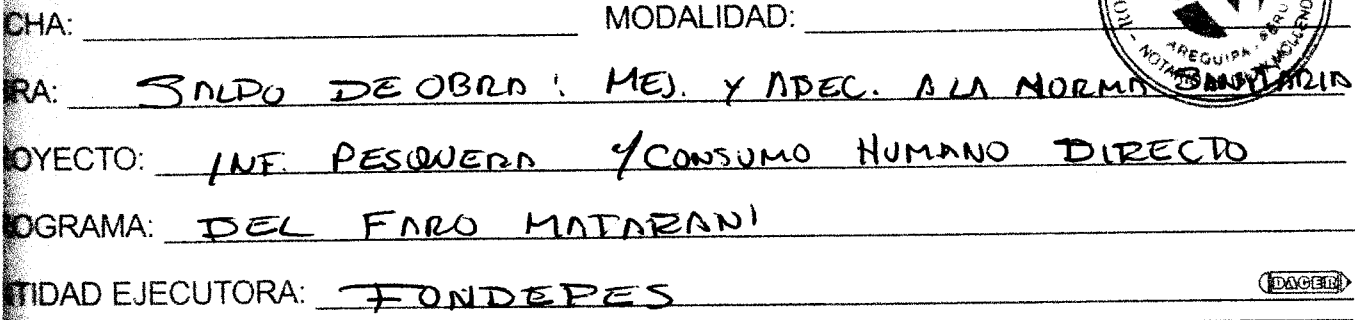 CHA: MODALIDAD:
RA: SALDO DE OBRA : MEJ. Y ADEC. A LA NORMA SANITARIA
OYECTO: INF. PESQUERA Y CONSUMO HUMANO DIRECTO
OGRAMA: DEL FARO MATARANI
TIDAD EJECUTORA: FONDEPES
DACER
AREQUIPA - PERU